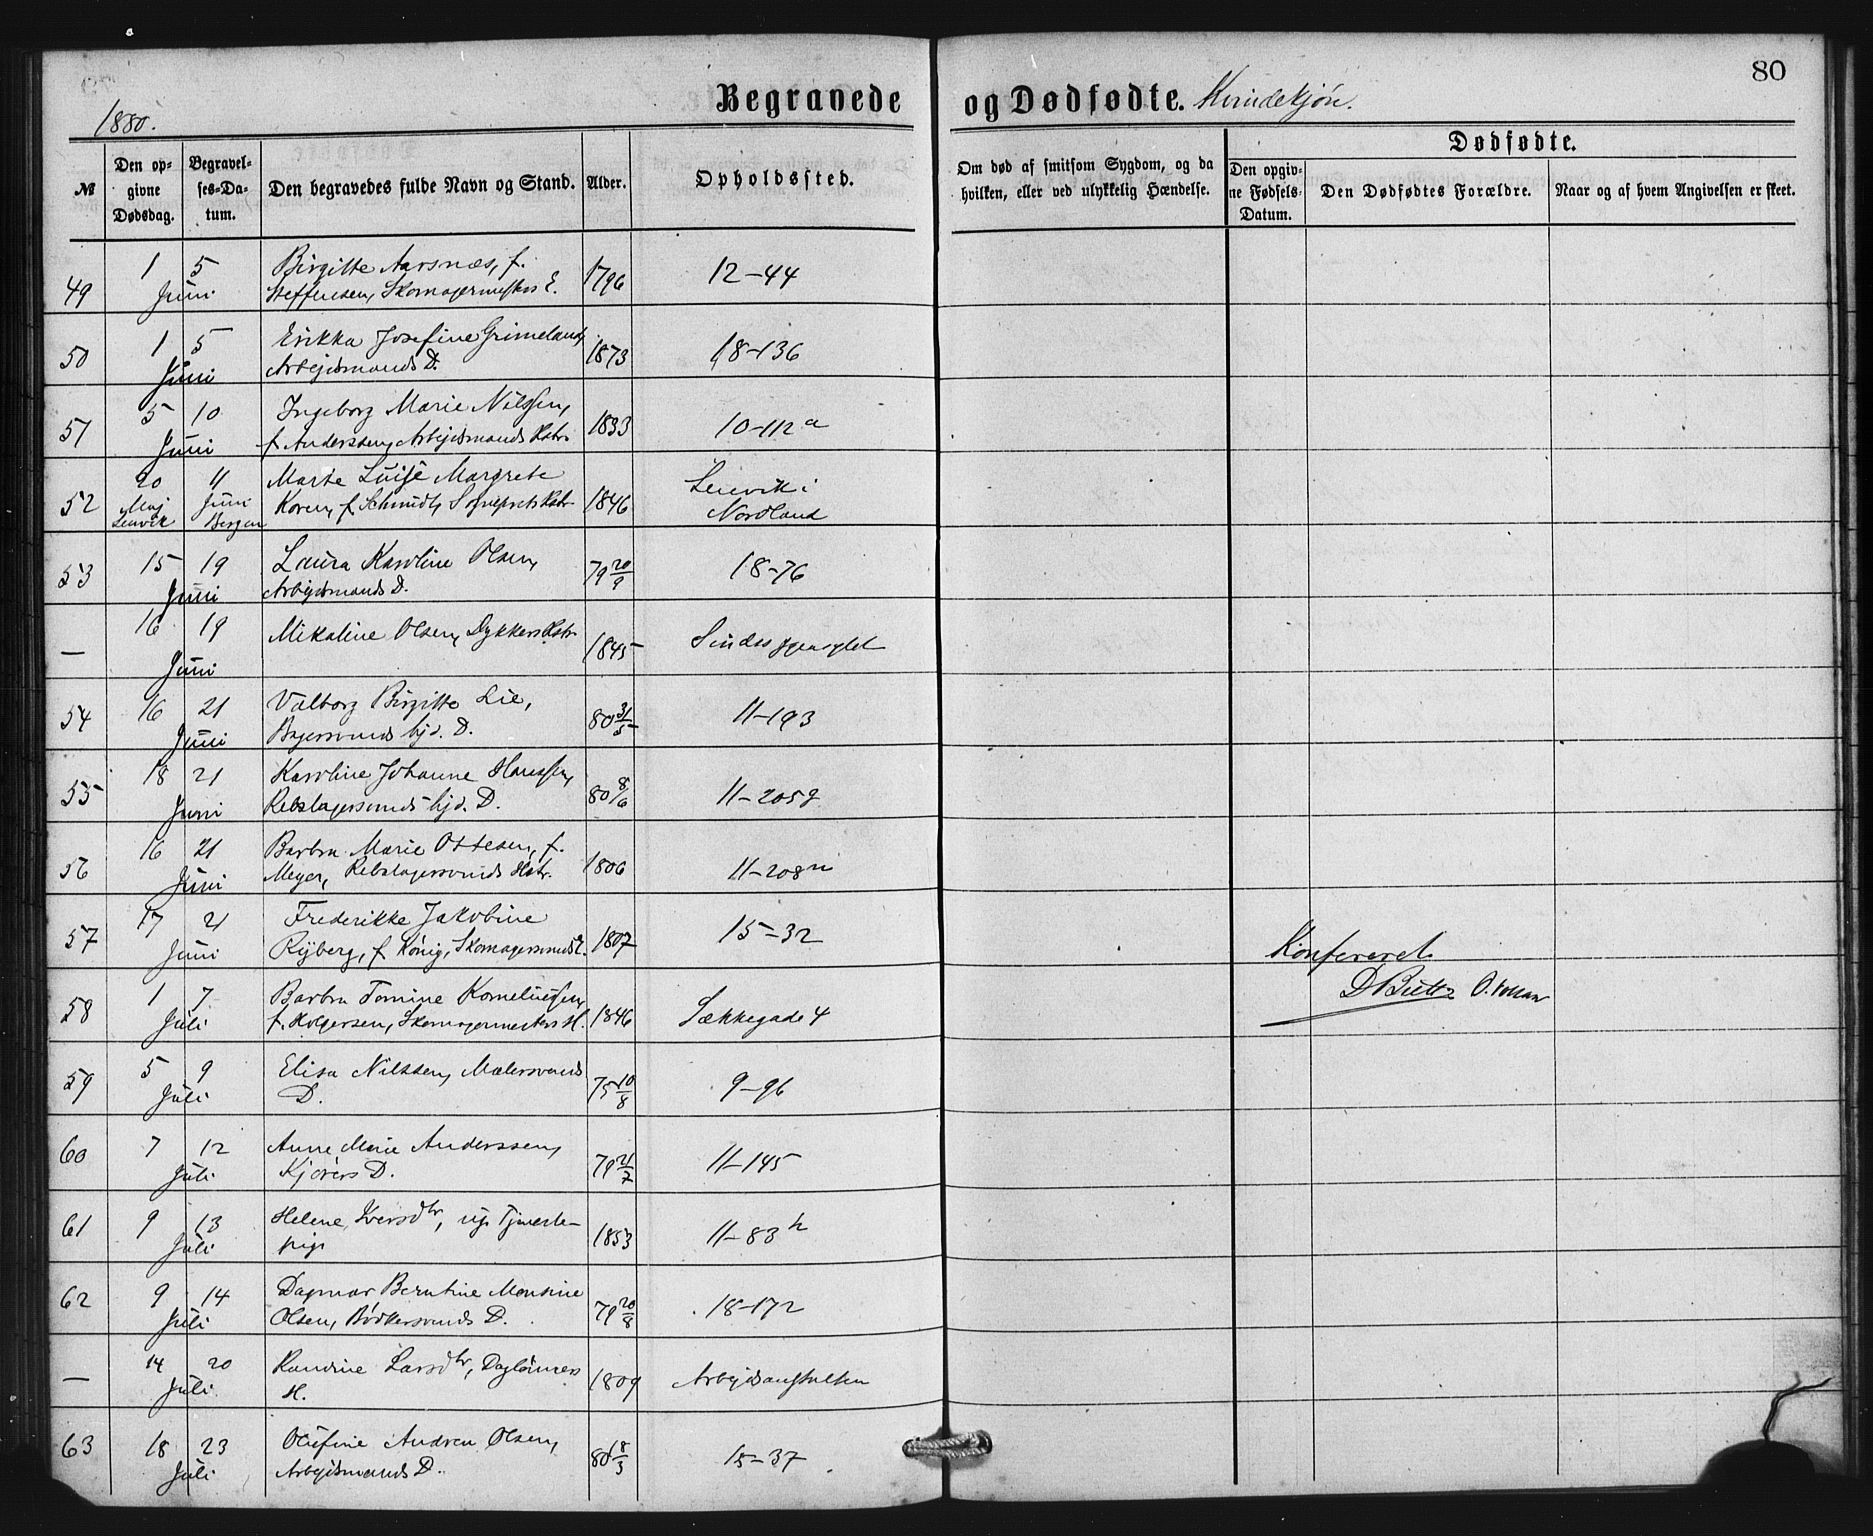 80
1880.
Begravede og Dødfødte. Kvindekjøn.
№
Den op-
givne
Dødsdag.
Begravel-
ses-Da-
tum.
Den begravedes fulde Navn og Stand.
Alder.
Opholdssted.
Om død af smitsom Sygdom, og da
hvilken, eller ved ulykkelig Hændelse.
Dødfødte.
Den opgiv-
ne Fødsels-
Datum.
Den Dødfødtes Forældre.
Naar og af hvem Angivelsen er skeet.
49 1 5 Juni Birgitte Aarsnæs, f.
Steffensen, Skomagermesters E. 1796 12-44
50 1 5 Juni Erikka Josefine Grimeland,
Arbejdsmands D. 1873 18-136
51 5 10 Juni Ingeborg Marie Nilssen,
f. Anderssen, Arbejdsmands Hstr. 1833 10-112a
52 20 Maj Lenvik 11 Juni Bergen Marte Luise Margrete
Koren, f. Schmidt, Sogneprests Hstr 1846 Lenvik i
Nordland
53 15 19 Juni Laura Karoline Olsen,
Arbejdsmands D. 79 20/9 18-76
— 16 19 Juni Mikaline Olsen, Dykkers Hstr 1845 Sindssygeasylet
54 16 21 Juni Valborg Birgitte Lie,
Bagersvends hjd. D. 80 31/5 11-193
55 18 21 Juni Karoline Johanne Hanssen,
Rebslagersvends hjd. D. 80 8/6 11-205g
56 16 21 Juni Barbra Marie Ottesen, f.
Meyer, Rebslagersvends Hstr. 1806 11-208m
57 17 21 Juni Frederikke Jakobine
Ryberg, f. König, Skomagersvends E. 1807 15-32
Konfereret
D Butts
58 1 7 Juli Barbra Tomine Korneliussen,
f. Holgersen, Skomagermesters H. 1846 Sækkegade 4
59 5 9 Juli Elisa Nilssen, Malersvends
D. 75 10/8 9-96
60 7 12 Juli Anne Marie Anderssen,
Kjørers D. 79 21/7 11-145
61 9 13 Juli Helene Iversdtr, ug. Tjeneste-
pige 1853 11-83h
62 9 14 Juli Dagmar Berntine Monsine
Olsen, Bødkersvends D. 79 20/8 18-172
— 14 20 Juli Randine Larsdtr, Daglønners
H. 1809 Arbejdsanstalten
63 18 23 Juli Olufine Andrea Olsen,
Arbejdsmands D. 80 18/3 15-37